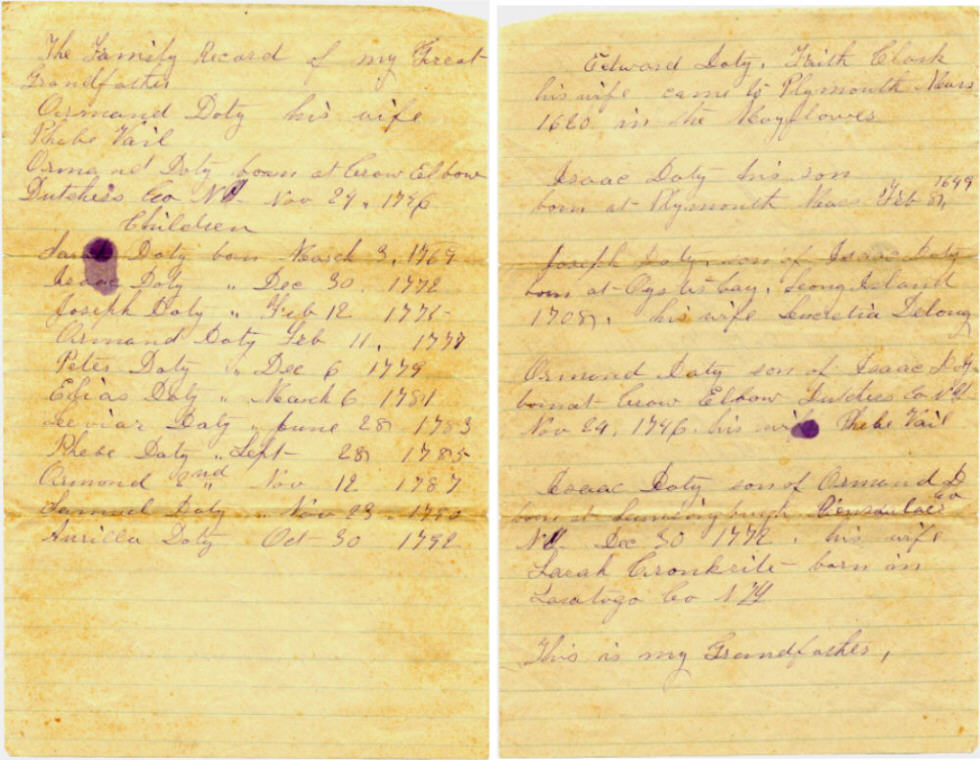 The Family Record of my Great
Grandfather
Ormand Doty his wife
Phebe Vail
Ormand Doty born at Crow Elbow
Dutchess Co NY. Nov 24, 1746
Children
Doty born March 3, 1769
Isaac Doty " Dec 30 1772
Joseph Doty " Feb 12 1775
Ormand Doty Feb 11, 1777
Peter Doty " Dec 6 1779
Elias Doty " March 6 1781
Doty " June 28 1783
Phebe Doty " Sept 28 1785
Ormond 2nd " Nov 12 1787
Samuel Doty " Nov 23, 1790
Aurilla Doty Oct 30 1792
Edward Doty, Faith Clark
his wife came to Plymouth Mass
1620 in the Mayflower
Isaac Doty his son
born at Plymouth Mass Feb 8, 1649
Joseph Doty, son of Isaac Doty
born at Oyster bay, Long Island
1708, his wife Lucretia Delong
Ormond Doty son of Isaac Doty
born at Crow Elbow Dutches Co NY
Nov 24, 1746. his wife Phebe Vail
Isaac Doty son of Ormand D
born at Lansingburgh Rensselaer Co
NY. Dec 30 1772, his wife
Sarah Cronkrite born in
Saratoga Co NY
This is my Grandfather,